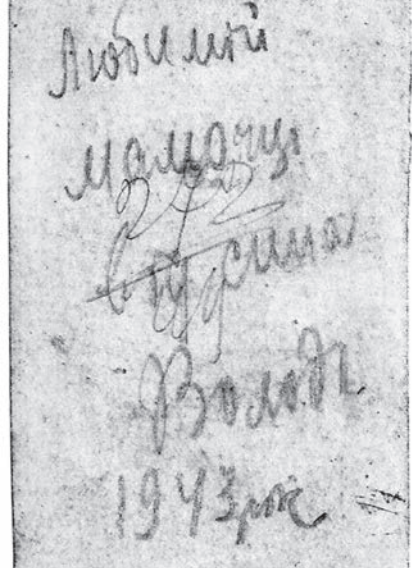 Любимій
мамочці
від сина
Володі
1943 рік